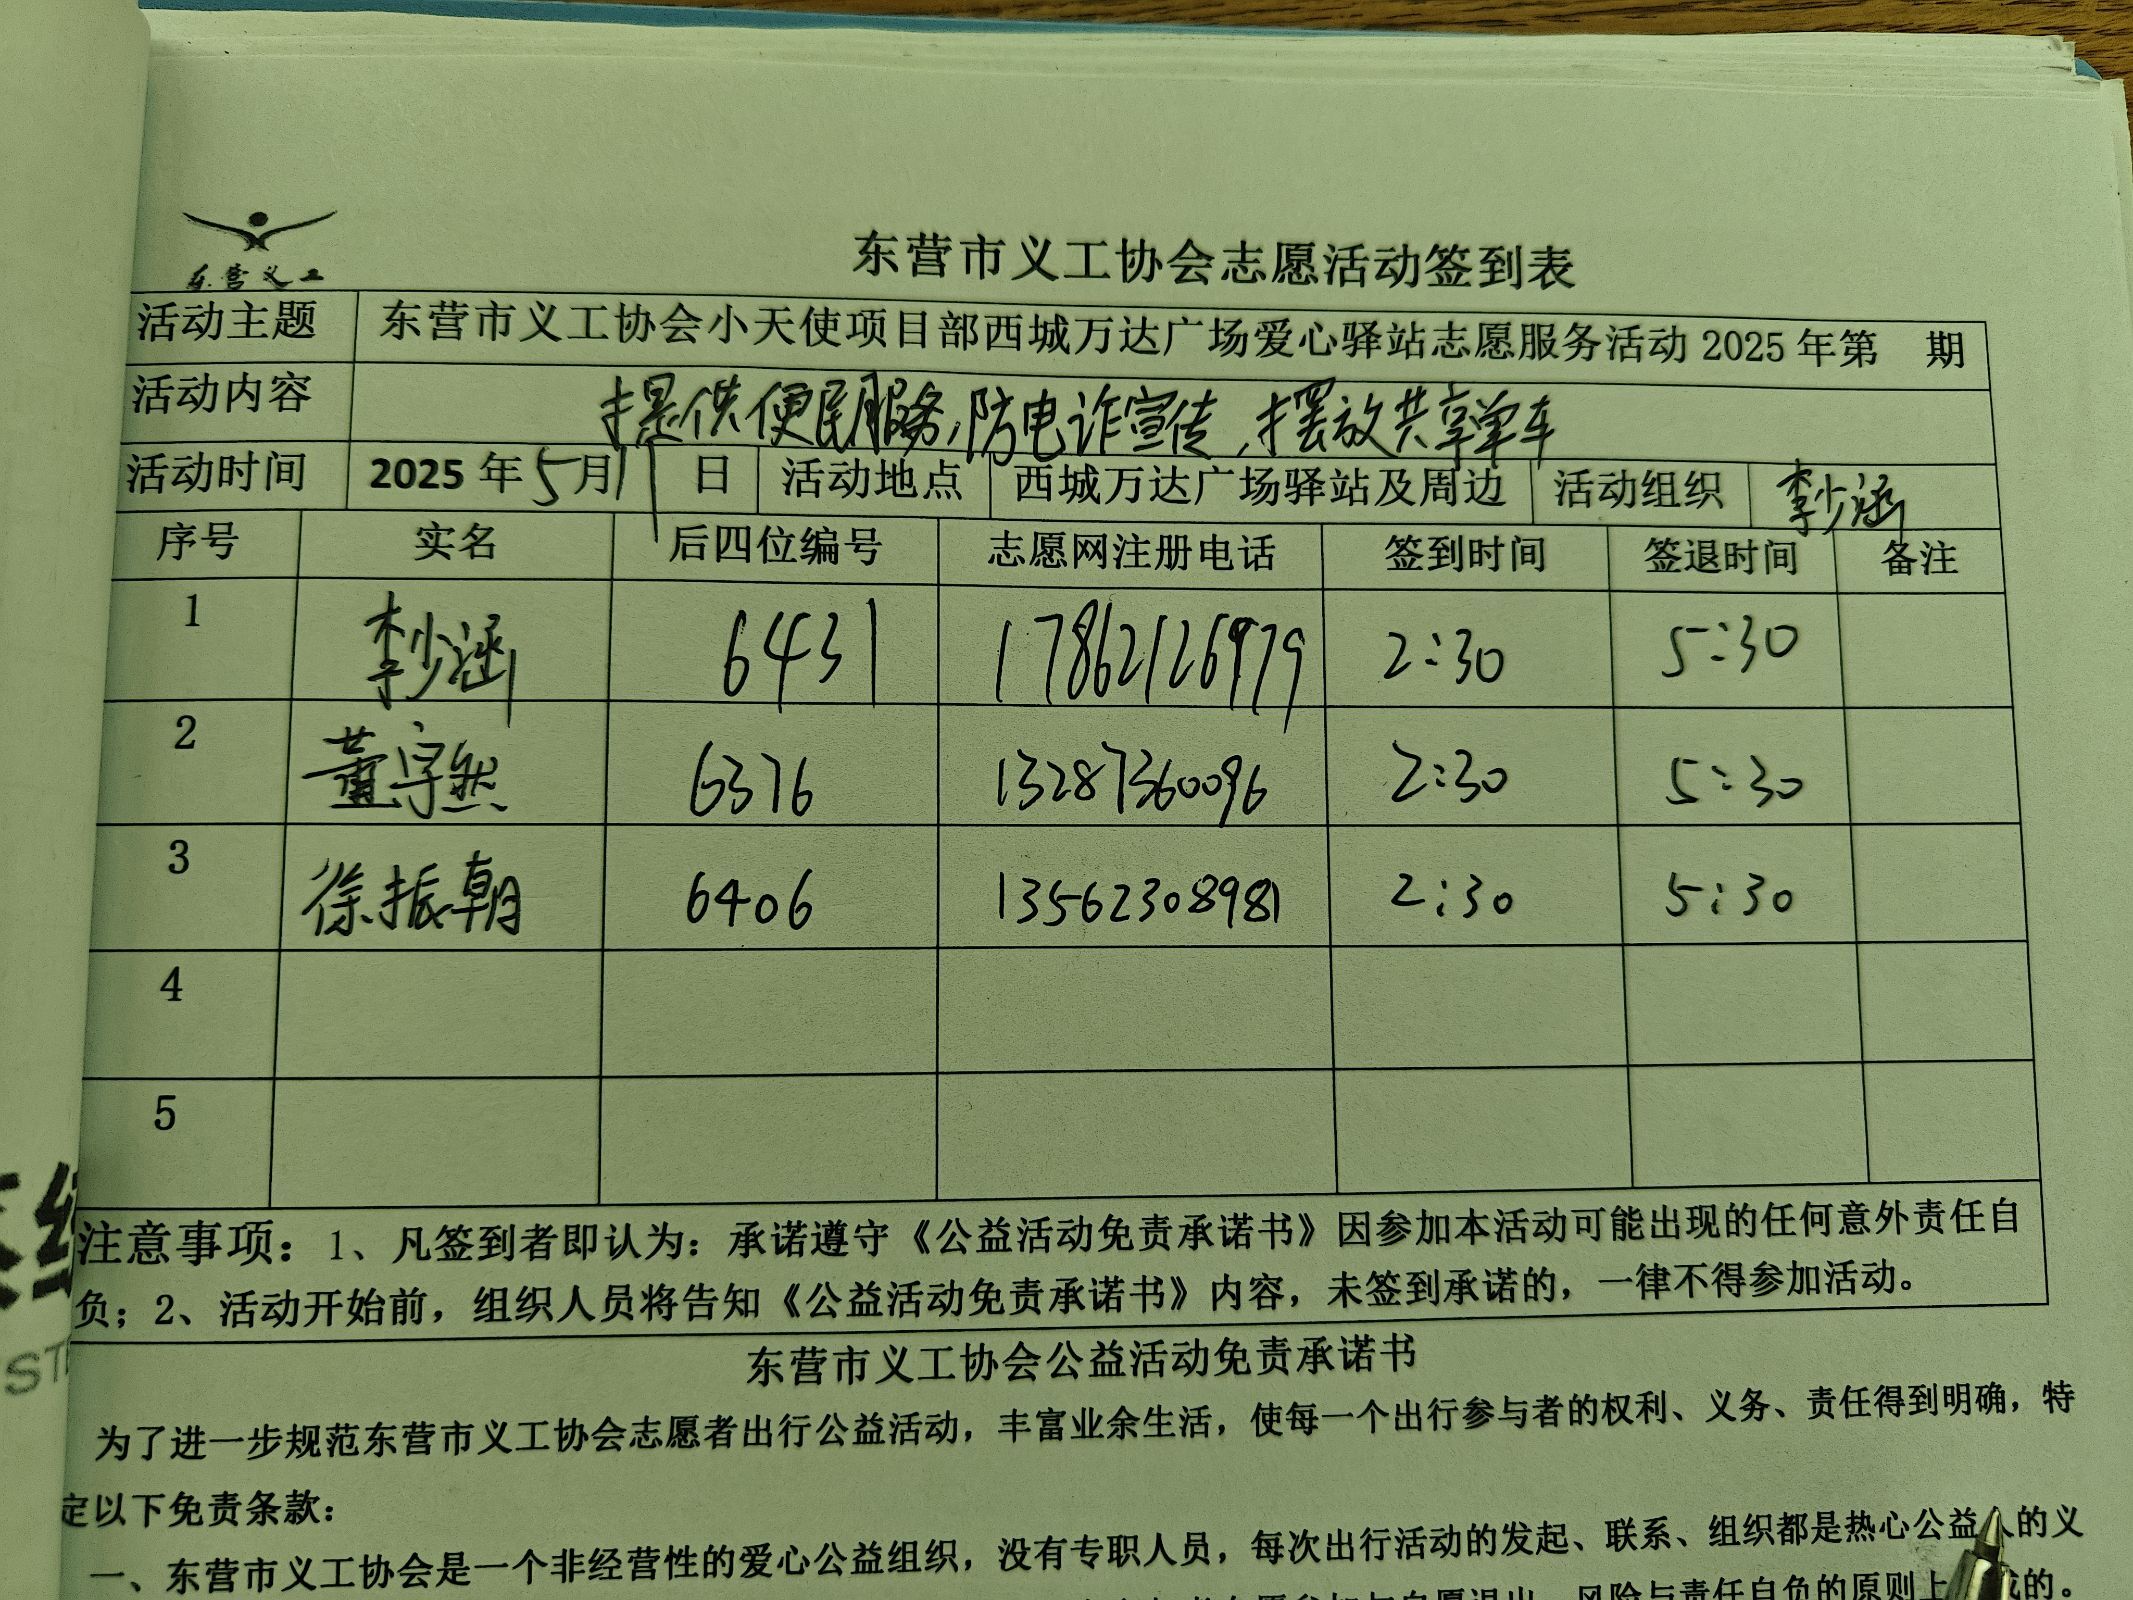 东营义工
东营市义工协会志愿活动签到表
活动主题 东营市义工协会小天使项目部西城万达广场爱心驿站志愿服务活动2025年第 期
活动内容 提供便民服务,防电诈宣传,摆放共享单车
活动时间 2025年5月17日 活动地点 西城万达广场驿站及周边 活动组织 李少涵
序号 实名 后四位编号 志愿网注册电话 签到时间 签退时间 备注
1 李少涵 6431 17862126979 2:30 5:30
2 董宇然 6376 13287360096 2:30 5:30
3 徐振朝 6406 13562308981 2:30 5:30
4
5
注意事项:1、凡签到者即认为:承诺遵守《公益活动免责承诺书》因参加本活动可能出现的任何意外责任自
负;2、活动开始前,组织人员将告知《公益活动免责承诺书》内容,未签到承诺的,一律不得参加活动。
东营市义工协会公益活动免责承诺书
为了进一步规范东营市义工协会志愿者出行公益活动,丰富业余生活,使每一个出行参与者的权利、义务、责任得到明确,特
定以下免责条款:
一、东营市义工协会是一个非经营性的爱心公益组织,没有专职人员,每次出行活动的发起、联系、组织都是热心公益人的义
风险与责任自负的原则上 的。